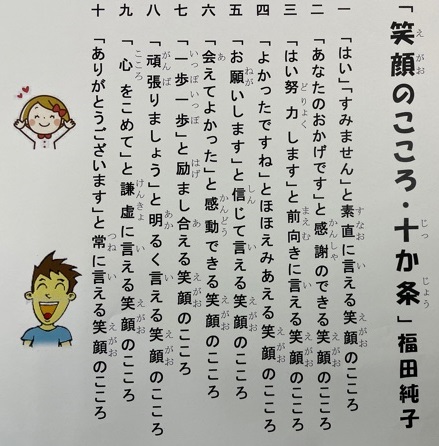 「笑顔のこころ・十か条」福田純子
一 「はい」「すみません」と素直に言える笑顔のこころ
二 「あなたのおかげです」と感謝のできる笑顔のこころ
三 「はい努力します」と前向きに言える笑顔のこころ
四 「よかったですね」とほほえみあえる笑顔のこころ
五 「お願いします」と信じて言える笑顔のこころ
六 「会えてよかった」と感動できる笑顔のこころ
七 「一歩一歩」と励まし合える笑顔のこころ
八 「頑張りましょう」と明るく言える笑顔のこころ
九 「心をこめて」と謙虚に言える笑顔のこころ
十 「ありがとうございます」と常に言える笑顔のこころ